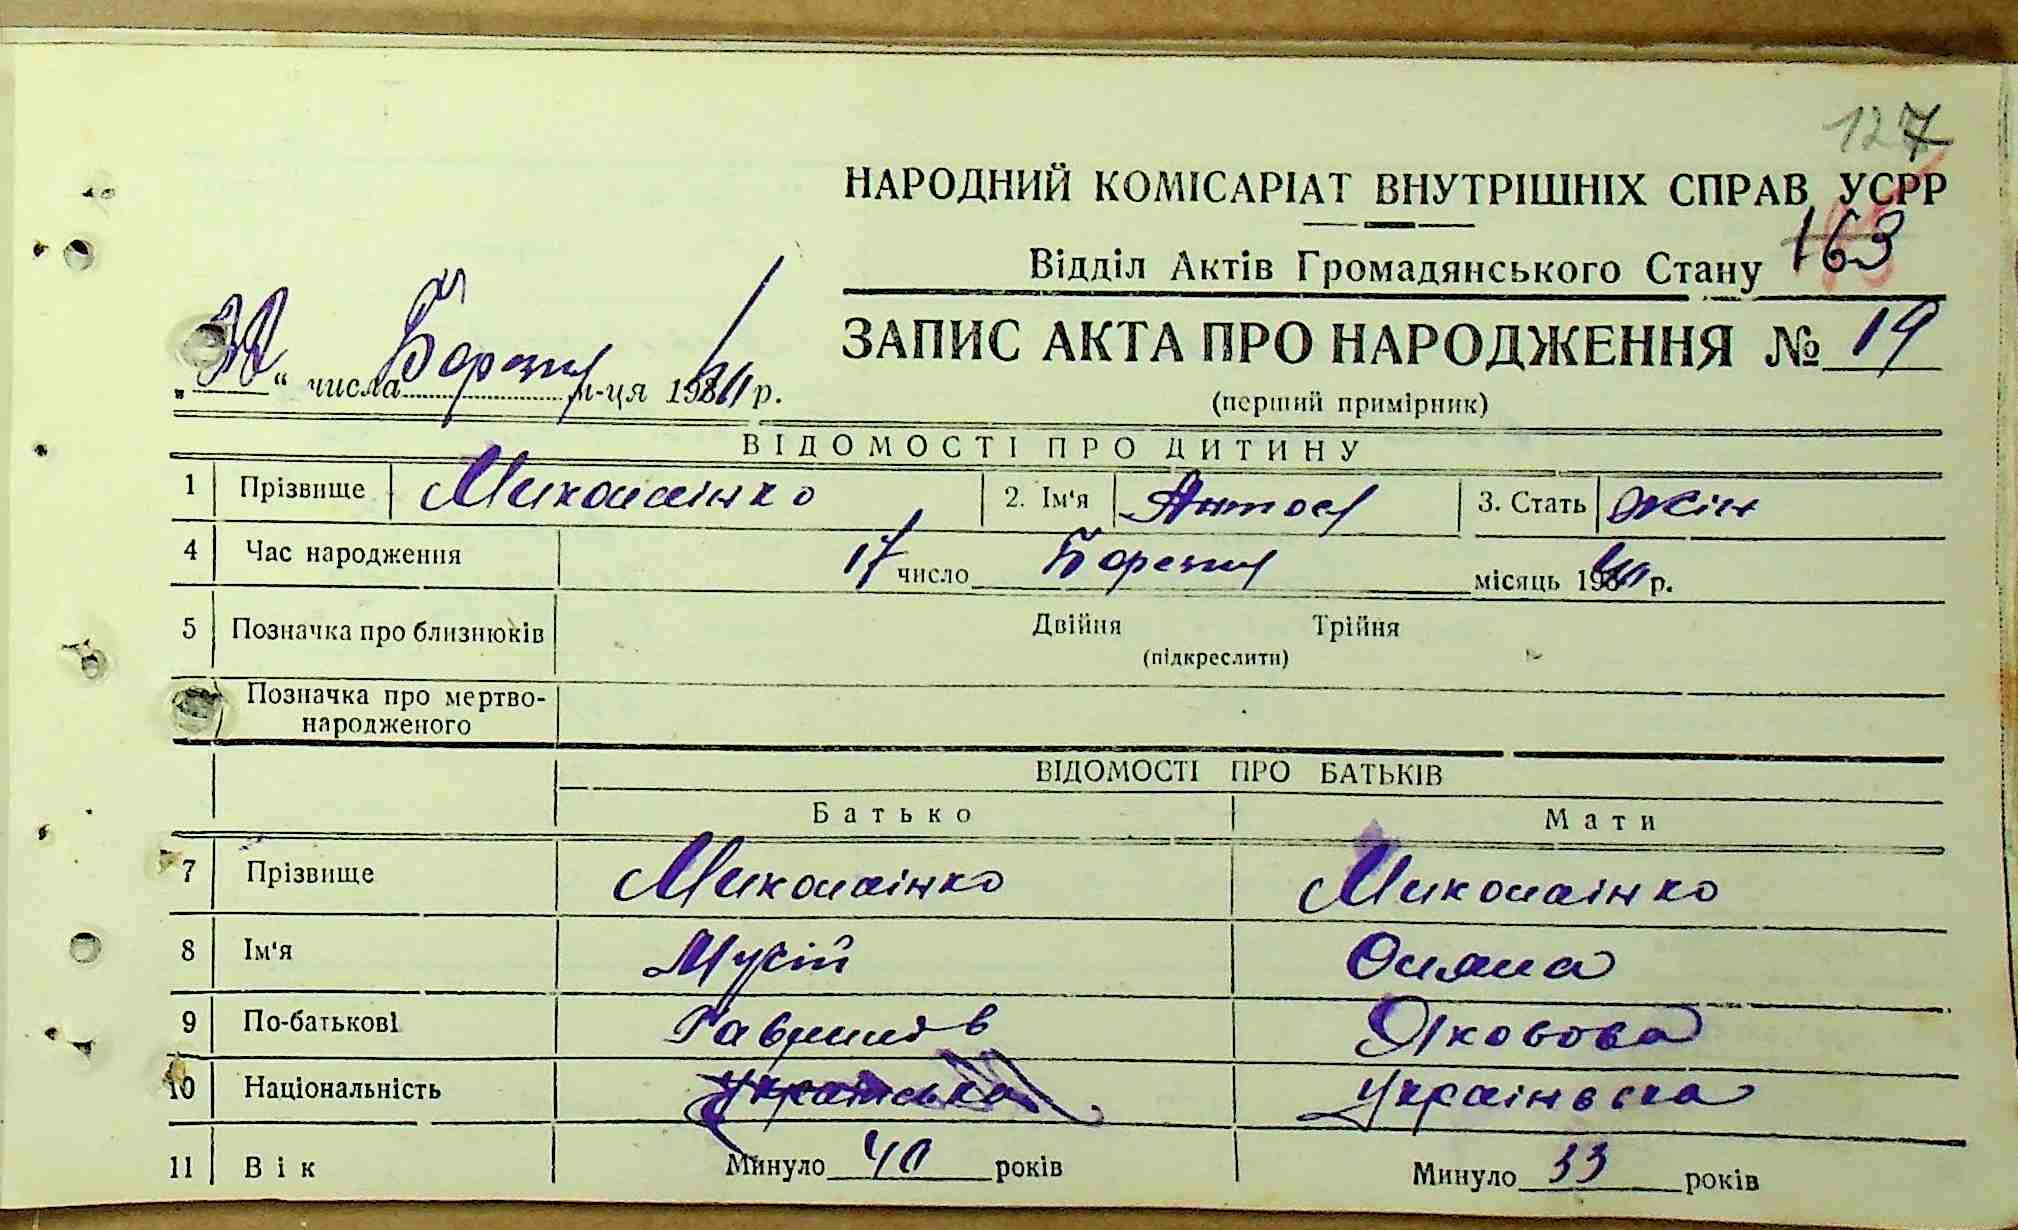 127
НАРОДНИЙ КОМІСАРІАТ ВНУТРІШНІХ СПРАВ УСРР
163
Відділ Актів Громадянського Стану
ЗАПИС АКТА ПРО НАРОДЖЕННЯ № 19
„ “ числа Березня м-ця 19 р.
(перший примірник)
ВІДОМОСТІ ПРО ДИТИНУ
1 Прізвище Миколаінко 2. Ім'я 3. Стать жін
4 Час народження 17 число Березня місяць 19 р.
5 Позначка про близнюків Двійня Трійня
(підкреслити)
Позначка про мертво-
народженого
ВІДОМОСТІ ПРО БАТЬКІВ
Батько Мати
7 Прізвище Миколаінко Миколаінко
8 Ім'я Мусій Оляна
9 По-батькові Гаврилов Яковова
10 Національність Українська Українська
11 Вік Минуло 40 років Минуло 33 років